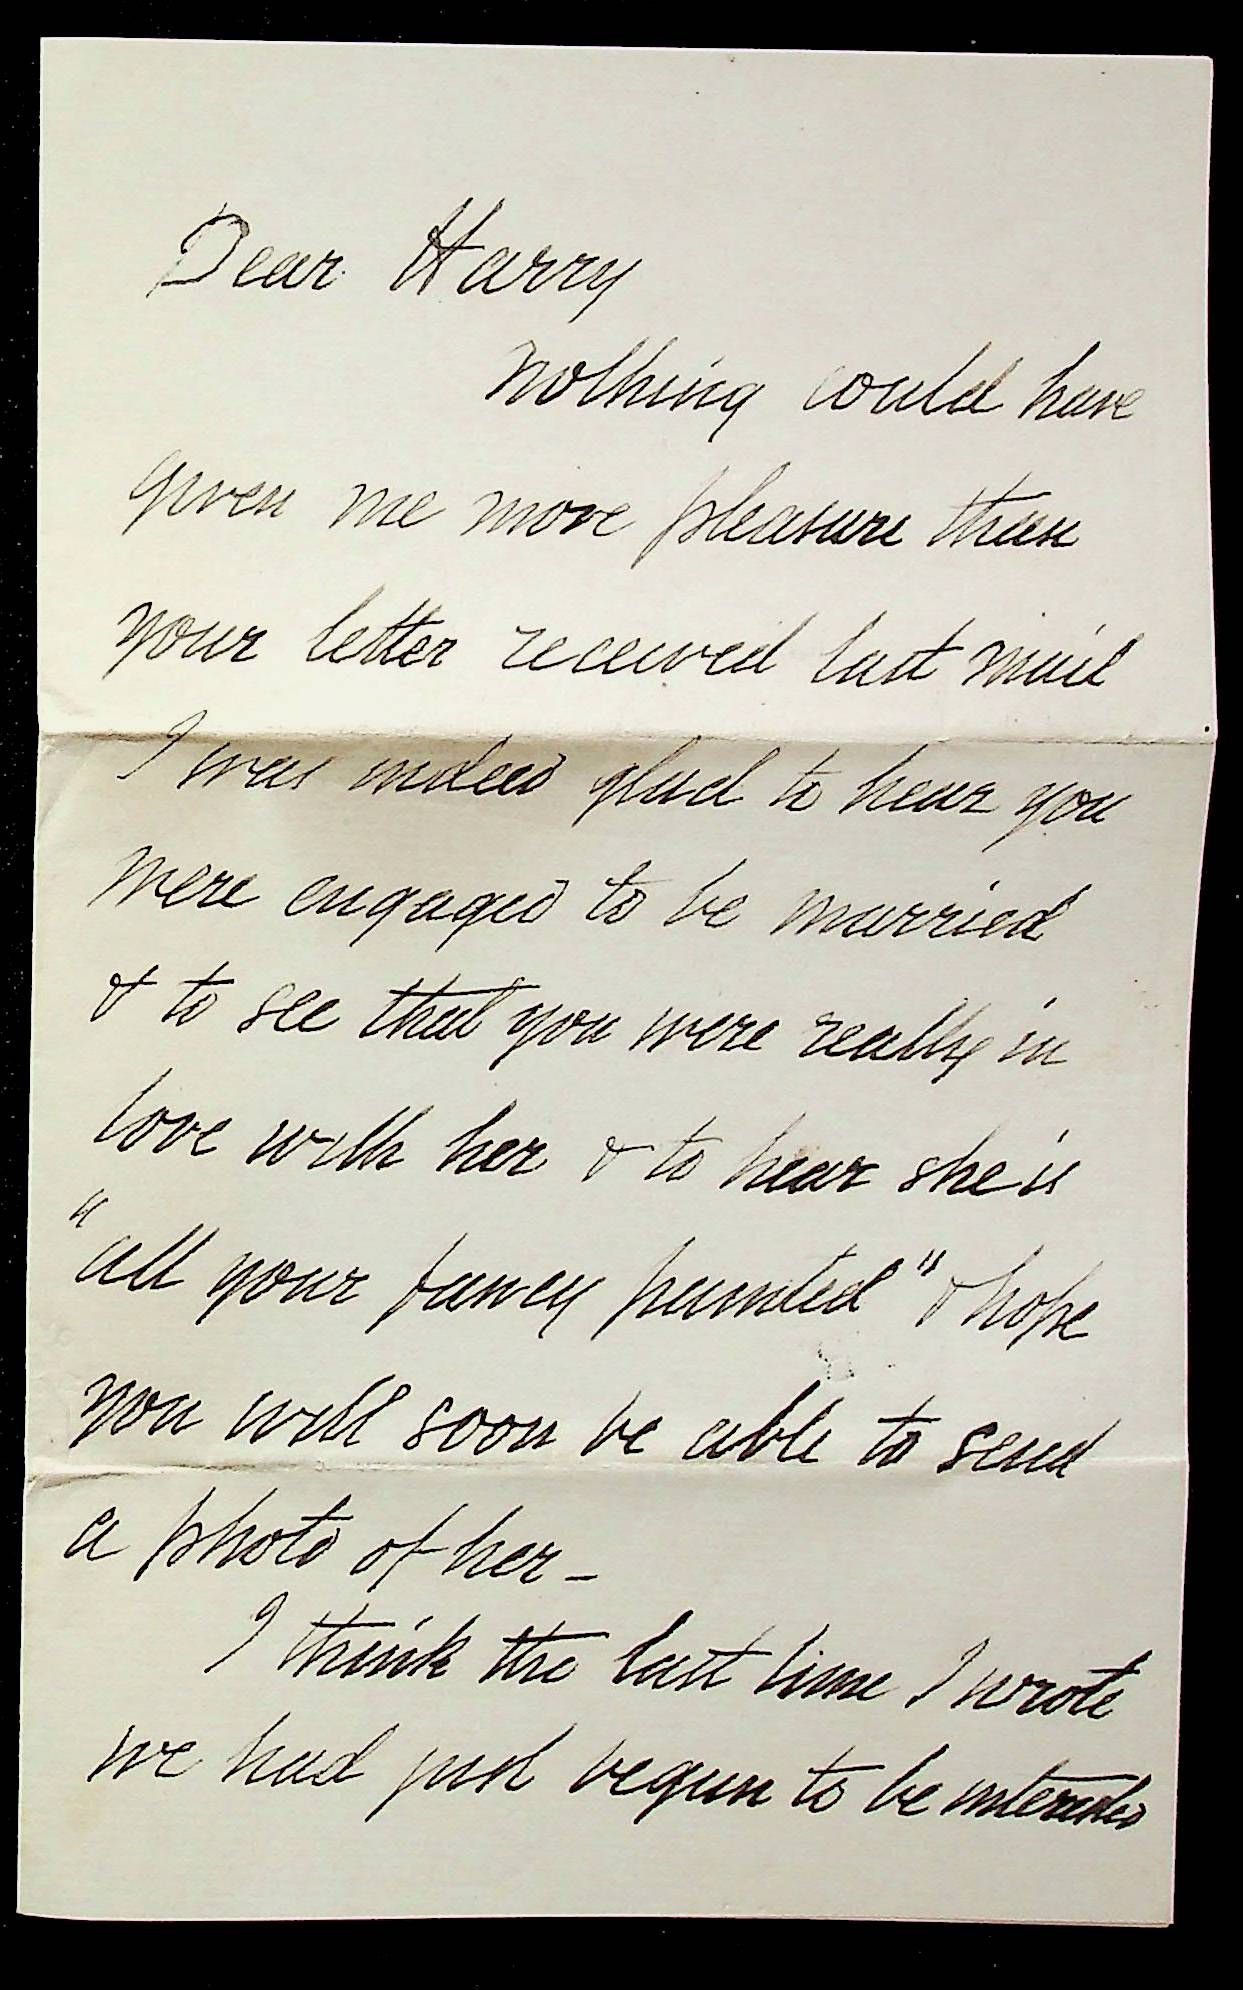 Dear Harry
Nothing could have
given me more pleasure than
your letter received last mail
I was indeed glad to hear you
were engaged to be married
& to see that you were really in
love with her & to hear she is
"all your fancy painted" & hope
you will soon be able to send
a photo of her –
I think the last time I wrote
we had just begun to be interested